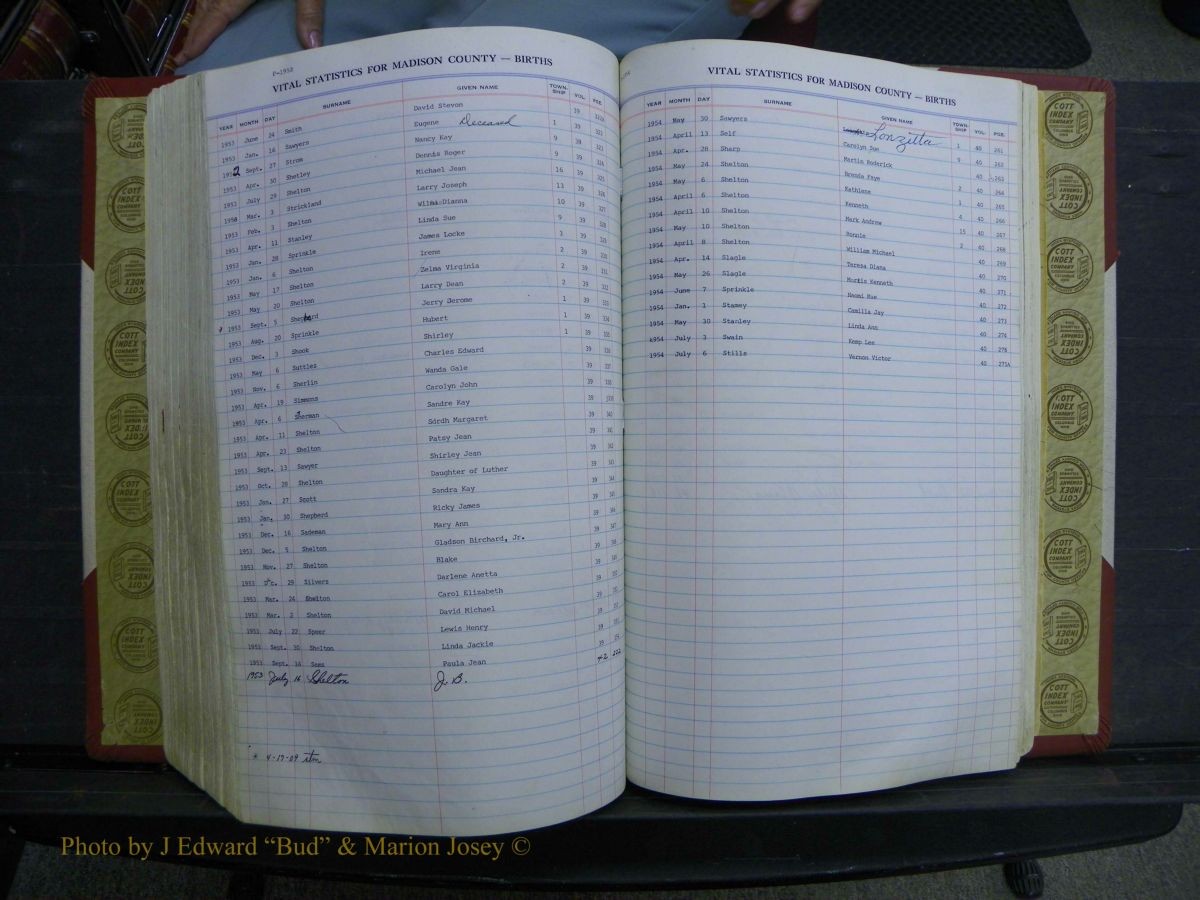 P-1953
VITAL STATISTICS FOR MADISON COUNTY — BIRTHS
YEAR MONTH DAY SURNAME GIVEN NAME TOWN-SHIP VOL. PGE.
1953 June 24 Smith David Stevon 39 322A
1953 Jan. 16 Sawyers Eugene Deceased 1 39 322
1952 Sept. 27 Strom Nancy Kay 9 39 323
1953 Apr. 30 Shetley Dennis Roger 9 39 324
1953 July 29 Shelton Michael Jean 16 39 325
1953 Mar. 3 Strickland Larry Joseph 13 39 326
1953 Feb. 3 Shelton Wilma Dianna 10 39 327
1953 Apr. 11 Stanley Linda Sue 9 39 328
1953 Jan. 28 Sprinkle James Locke 3 39 329
1953 Jan. 6 Shelton Irene 2 39 330
1953 May 17 Shelton Zelma Virginia 2 39 331
1953 May 20 Shelton Larry Dean 2 39 332
1953 Sept. 5 Shepherd Jerry Jerome 1 39 333
1953 Aug. 20 Sprinkle Hubert 1 39 334
1953 Dec. 3 Shook Shirley 1 39 335
1953 May 6 Suttles Charles Edward 39 336
1953 Nov. 6 Sherlin Wanda Gale 39 337
1953 Apr. 19 Simmons Carolyn John 39 338
1953 Apr. 6 Sherman Sandre Kay 39 339
1953 Apr. 11 Shelton Sördh Margaret 39 340
1953 Apr. 23 Shelton Patsy Jean 39 341
1953 Sept. 13 Sawyer Shirley Jean 39 342
1953 Oct. 28 Shelton Daughter of Luther 39 343
1953 Jan. 27 Scott Sandra Kay 39 344
1953 Jan. 30 Shepherd Ricky James 39 345
1953 Dec. 16 Sademan Mary Ann 39 346
1953 Dec. 5 Shelton Gladson Birchard, Jr. 39 347
1953 Nov. 27 Shelton Blake 39 348
1953 Dec. 29 Silvers Darlene Anetta 39 349
1953 Mar. 24 Shelton Carol Elizabeth 39
1953 Mar. 2 Shelton David Michael 39
1953 July 22 Speer Lewis Henry 39
1953 Sept. 30 Shelton Linda Jackie 39
1953 Sept. 14 Sams Paula Jean 39
1953 July 16 Shelton J. B. 42 222
* 4-17-09
VITAL STATISTICS FOR MADISON COUNTY — BIRTHS
YEAR MONTH DAY SURNAME GIVEN NAME TOWN-SHIP VOL. PGE.
1954 May 30 Sawyers Lonzitta 1 40 261
1954 April 13 Self Carolyn Sue 9 40 262
1954 Apr. 28 Sharp Martin Roderick 40 263
1954 May 24 Shelton Brenda Faye 2 40 264
1954 May 6 Shelton Kathlene 1 40 265
1954 April 6 Shelton Kenneth 4 40 266
1954 April 10 Shelton Mark Andrew 15 40 267
1954 May 10 Shelton Ronnie 2 40 268
1954 April 8 Shelton William Michael 40 269
1954 Apr. 14 Slagle Teresa Diana 40 270
1954 May 26 Slagle Morkis Kenneth 40 271
1954 June 7 Sprinkle Naomi Rae 40 272
1954 Jan. 1 Stamey Camilla Jay 40 273
1954 May 30 Stanley Linda Ann 40 274
1954 July 3 Swain Kemp Lee 40 275
1954 July 6 Stills Vernon Victor 40 275A
COTT INDEX COMPANY COLUMBUS OHIO
Photo by J Edward “Bud” & Marion Josey ©